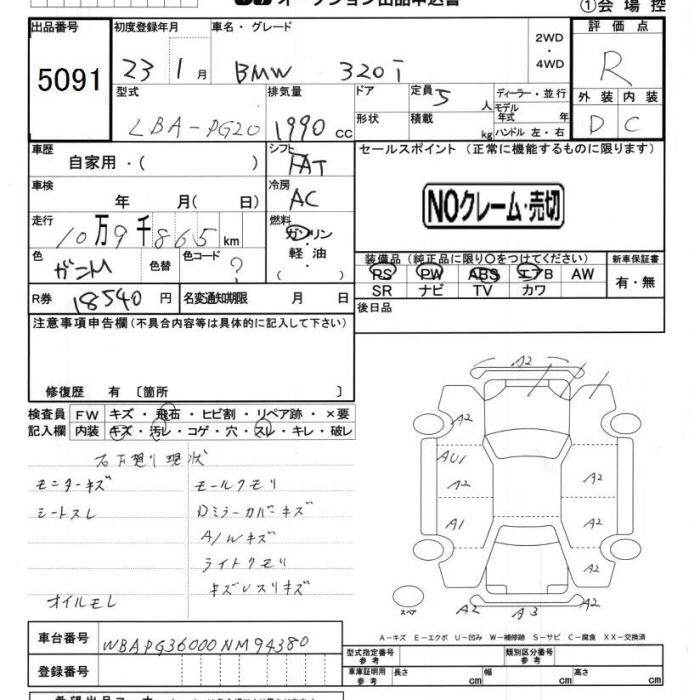 オークション出品申込書
①会場控
出品番号 初度登録年月 車名・グレード 2WD・4WD 評価点
5091 23 1月 BMW 320i R
型式 排気量 ドア 定員 5人 ディーラー・並行 外装 内装
LBA-PG20 1990cc 形状 積載 kg モデル年式 年 ハンドル 左・右 D C
車歴 自家用・( ) シフト FAT セールスポイント (正常に機能するものに限ります)
車検 年 月( 日) 冷房 AC NOクレーム・売切
走行 10万9千865km 燃料 ガソリン・軽油・( )
色 ガンM 色替 色コード ? 装備品(純正品に限り○をつけてください) 新車保証書
PS PW ABS エアB AW 有・無
SR ナビ TV カワ
R券 18540円 名変通知期限 月 日 後日品
注意事項申告欄(不具合内容等は具体的に記入して下さい)
修復歴 有〔箇所 〕
検査員 FW キズ・飛石・ヒビ割・リペア跡・×要
記入欄 内装 キズ・汚レ・コゲ・穴・スレ・キレ・破レ
現状
モニターキズ モールクモリ
シートスレ Dミラーカバーキズ
A/Wキズ
ライトクモリ
オイルモレ
A2
A2
AU1 A2 A2
A1 A2
A2
スペア A2 A3 A2
A-キズ E-エクボ U-凹み W-補修跡 S-サビ C-腐食 XX-交換済
車台番号 WBAPG36000NM94380
登録番号
型式指定番号 参考 類別区分番号 参考
車庫証明用 参考 長さ cm 幅 cm 高さ cm